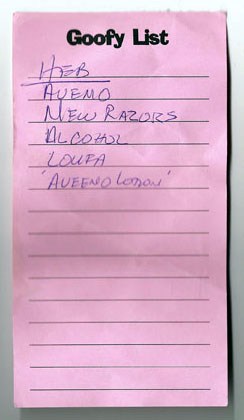 Goofy List
HEB
AVEMO
NEW RAZORS
ALCOHOL
LOUFA
'AVEENO LOTION'